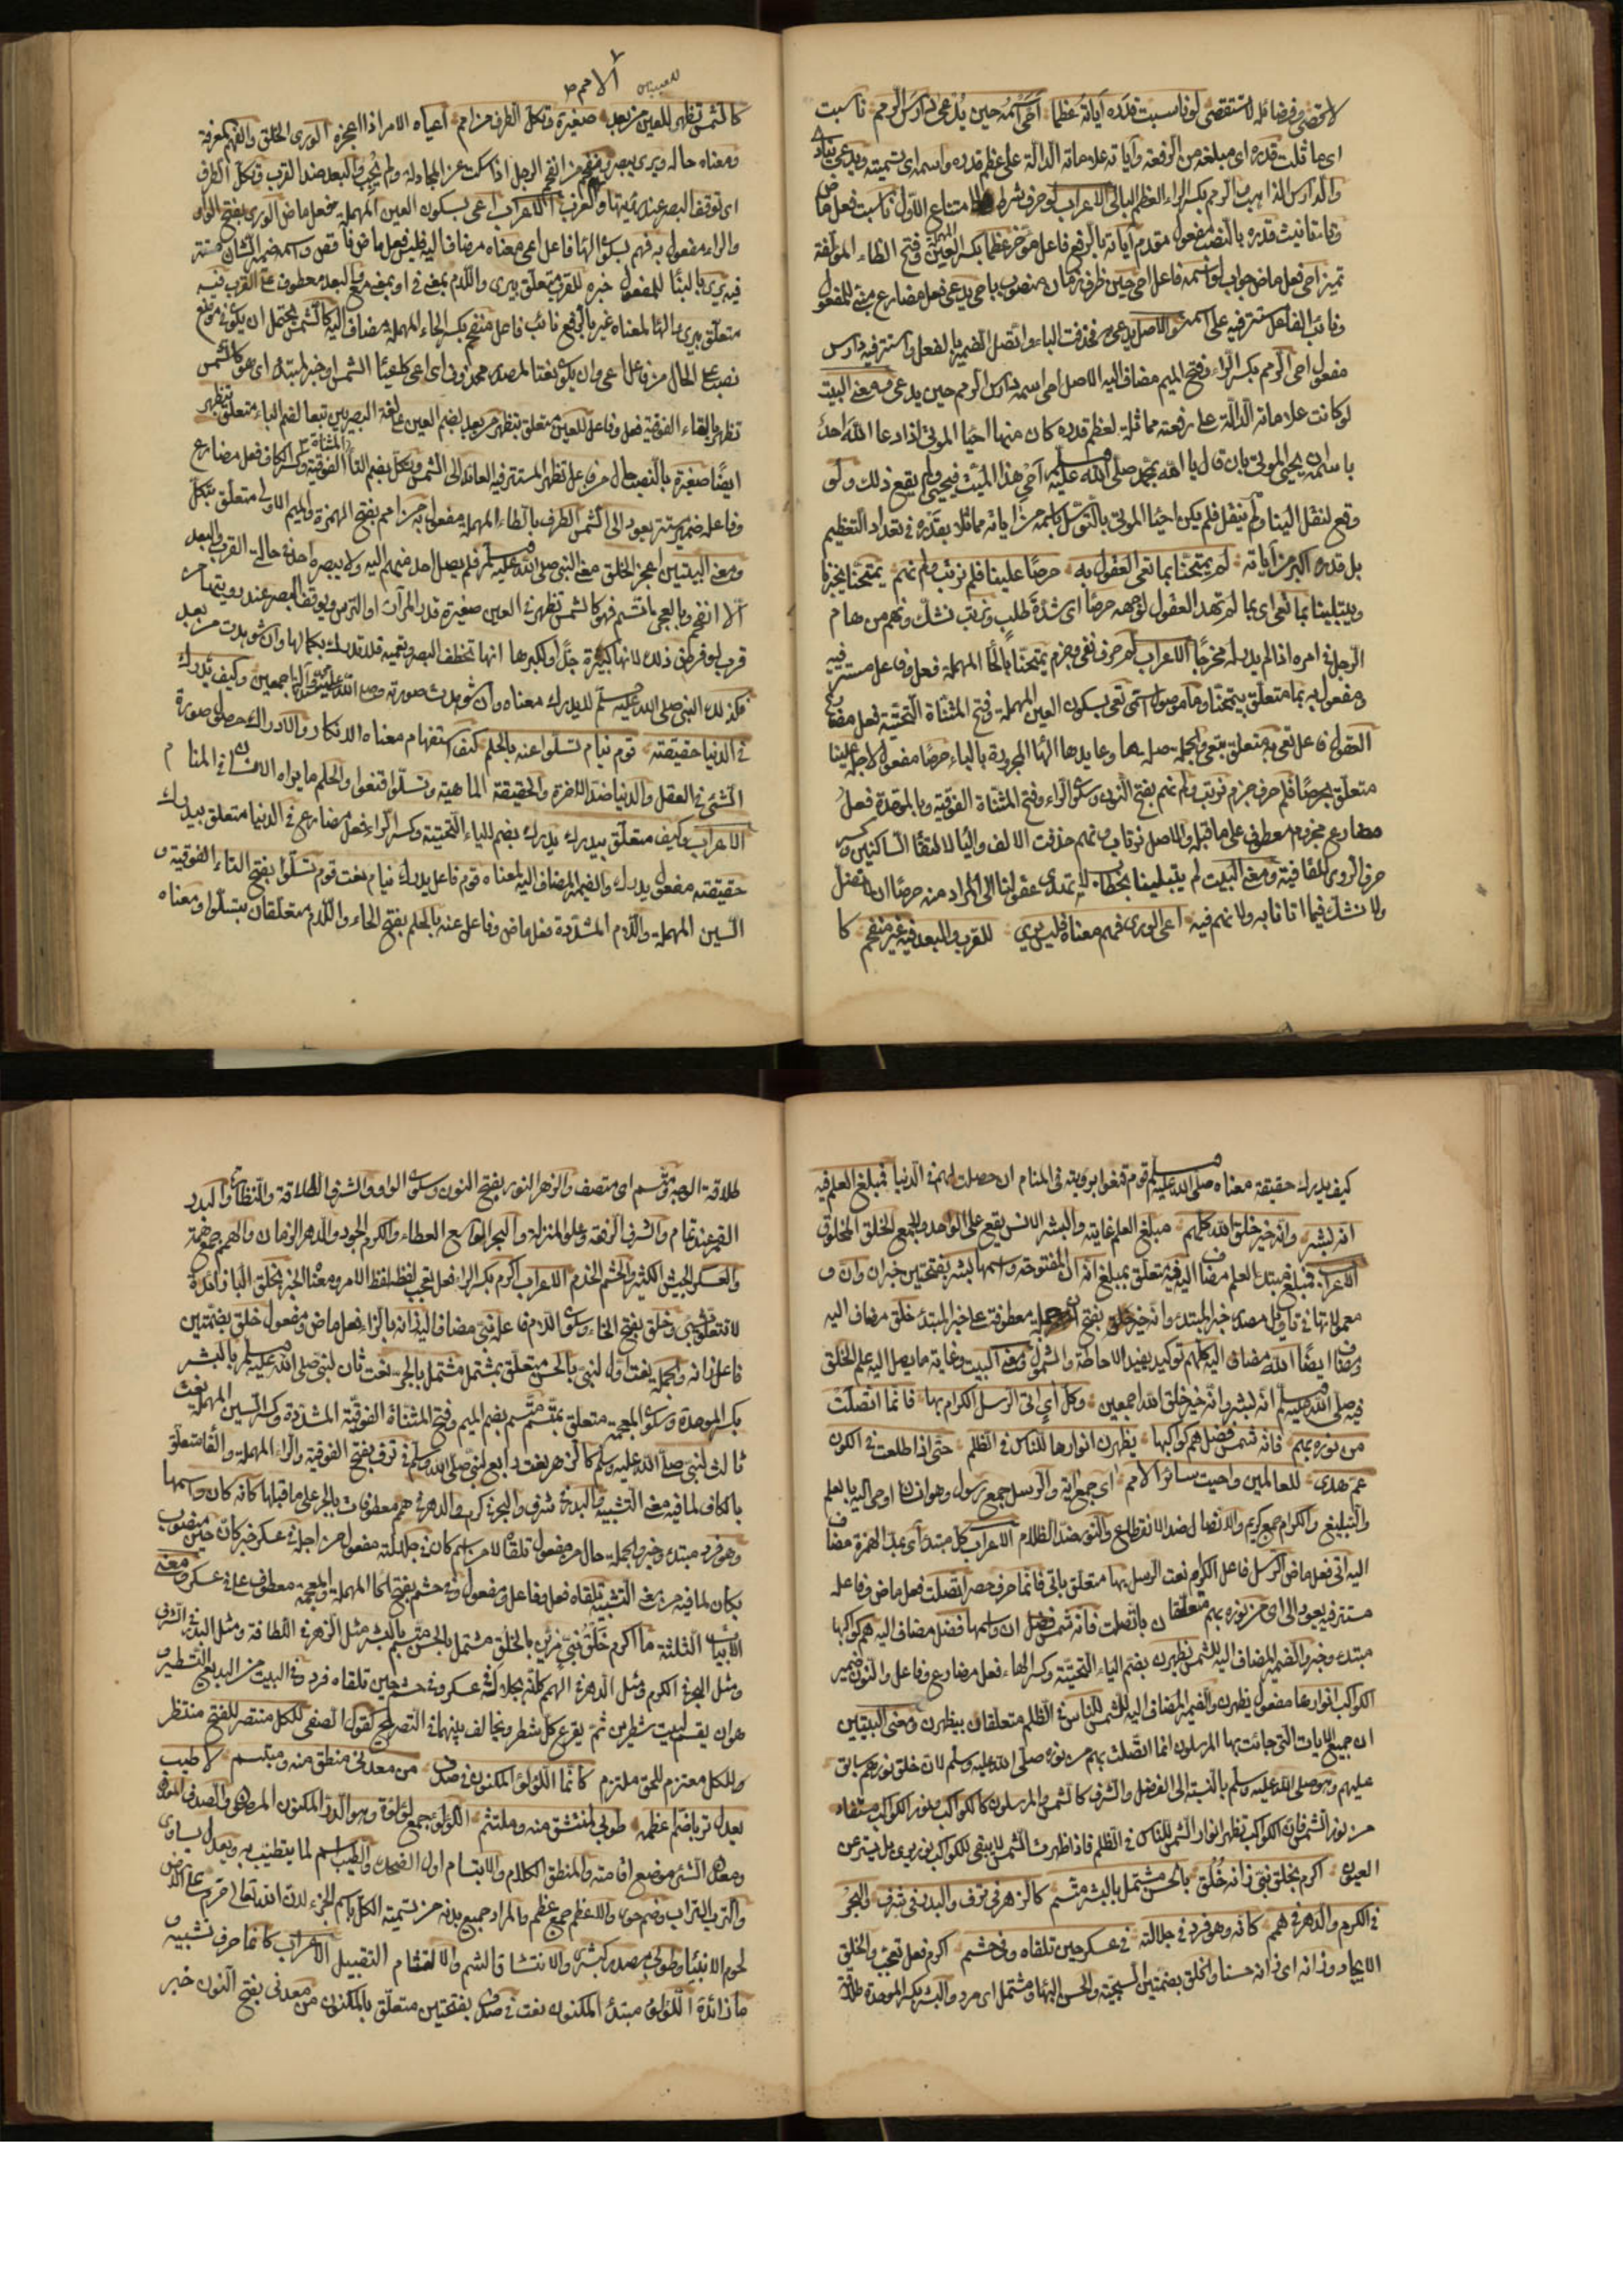 لا تحصى وفضائله لا تستقصى لو ناسبت قدره آياته عظما احيى اسمه حين يدعى دارس الرمم ناسبت
اى ماثلت قدره اى مبلغه من الرفعة وآياته علاماته الدالة على عظم قدره واسمه اى تسميته ويدعى ينادى
والدارس الذاهب والرمم بكسر الراء العظم البالى الاعراب لو حرف شرط لامتناع الاول ناسبت فعل ماض
وتاء تانيث قدره بالنصب مفعول مقدم آياته بالرفع فاعل مؤخر عظما بكسر العين المهملة وفتح الظاء المؤلفة
تميز احيى فعل ماض جواب لو اسمه فاعل احيى حين ظرف زمان منصوب باحيى يدعى فعل مضارع مبنى للمفعول
ونائب الفاعل مستتر فيه على اسمه والاصل يدعى به فحذفت الباء واتصل الضمير بالفعل واستتر فيه دارس
مفعول احيى الرمم بكسر الراء وفتح الميم مضاف اليه الاصل احيى اسمه دارس الرمم حين يدعى به ومعنى البيت
لو كانت علاماته الدالة على رفعته مماثلة لعظم قدره كان منها احيا الموتى اذا دعا الله احد
باسمه يحيى الموتى بان قال يا الله بمحمد صلى الله عليه وسلم احى هذا الميت فيحيى ولم يقع ذلك ولو
وقع لنقل الينا ولم ينقل فلم يكن احيا الموتى بالتوسل باسمه من آياته مماثلا بقدره فى تعداد التعظيم
بل قدره اكبر من آياته لم يمتحنا بما تعى العقول به حرصا علينا فلم نرتب ولم نهم يمتحنا يختبرنا
ويبتلينا بما تعى اى بما لم تهتد العقول لوجهه حرصا اى شدة طلب ونرتب نشك ونهم من هام
الرجل فى امره اذا لم يدر له مخرجا الاعراب لم حرف نفى وجزم يمتحنا بالحا المهملة فعل وفاعل مستتر فيه
ومفعول به بما متعلق بيمتحنا وما موصول اسمى تعى بسكون العين المهملة وفتح المثناة التحتية فعل مضارع
العقول فاعل تعى به متعلق بتعى والجملة صلة ما وعايدها الها المجرورة بالباء حرصا مفعول لاجله علينا
متعلق بحرصا فلم حرف جزم نرتب ولم نهم بفتح النون وسكون الراء وفتح المثناة الفوقية وبالموحدة فعل
مضارع مجزوم معطوف على ما قبله والاصل نرتاب ونهم حذفت الالف واليا لالتقا الساكنين وكسر
حرف الروى للقافية ومعنى البيت لم يبتلينا بخطاب لا تهتدى عقولنا الى المراد منه حرصا ان لا نضل
ولا نشك فيما اتانا به ولا نهم فيه اعيى الورى فهم معناه فليس يرى للقرب والبعد فيه غير منفحم كا
كالشمس تظهر للعين من بعد صغيرة وتكل الطرف من امم اعياه الامر اذا اعجزه الورى الخلق والفهم المعرفة
ومعناه حاله ويرى يبصر ومنفحم من انفحم الرجل اذا سكت عن المجادلة ولم يجب والبعد ضد القرب وتكل الطرف
اى توقف البصر عند رؤيتها والامم القرب الاعراب اعيى بسكون العين المهملة فعل ماض الورى بفتح الواو
والراء مفعول به فهم بسكون الها فاعل اعيى معناه مضاف اليه فليس فعل ماض ناقص واسمه ضمير الشان مستتر
فيه يرى بالبنا للمفعول خبره للقرب متعلق بيرى واللام بمعنى فى او بمعنى مع والبعد معطوف على القرب فيه
متعلق بيرى والها لمعناه غير بالرفع نائب فاعل منفحم بكسر الحاء المهملة مضاف اليه كالشمس يحتمل ان يكون فى موضع
نصب على الحال من فاعل اعيى وان يكون نعتا لمصدر محذوف اى اعيى كاعيا الشمس او خبر المبتدا اى هو كالشمس
تظهر بالتاء الفوقية فعل وفاعل للعين متعلق بتظهر من بعد بضم العين على لغة البصريين تبعا لضم الباء متعلق بتظهر
ايضا صغيرة بالنصب حال من فاعل تظهر المستتر فيه العائد الى الشمس وتكل بضم التا المثناة الفوقية وكسر الكاف فعل مضارع
وفاعله ضمير مستتر يعود الى الشمس الطرف بالطاء المهملة مفعول به من امم بفتح الهمزة والميم الاولى متعلق بتكل
ومعنى البيتين اعجز الخلق معنى النبى صلى الله عليه وسلم فلم يصل احد منهم اليه ولا يبصره احد فى حالتى القرب والبعد
الا انفحم وبالعجز اتسم فهو كالشمس تظهر فى العين صغيرة قدر المرآة او الترس ويوقف البصر عند رويتها من
قرب لو فرض ذلك لانها كبيرة جدا ولكبرها انها تخطف البصر وتعميه فلا تدرك بكمالها وان شوهدت من بعد
فكذلك النبى صلى الله عليه وسلم لا يدرك معناه وان شوهدت صورته وكيف يدرك
فى الدنيا حقيقته قوم نيام تسلوا عنه بالحلم كيف استفهام معناه الانكار والادراك حصول صورة
الشئ فى العقل والدنيا ضد الاخرة والحقيقة الماهية وتسلوا قنعوا والحلم ما يراه الانسان فى المنام
الاعراب وكيف متعلق بيدرك يدرك بضم الياء التحتية وكسر الراء فعل مضارع فى الدنيا متعلق بيدرك
حقيقته مفعول يدرك والضمير المضاف اليه لمعناه قوم فاعل يدرك نيام نعت قوم تسلوا بفتح التاء الفوقية و
السين المهملة واللام المشددة فعل ماض وفاعل عنه بالحلم بفتح الحاء واللام متعلقان بتسلوا ومعناه
كيف يدرك حقيقة معناه صلى الله عليه وسلم قوم قنعوا برويته فى المنام ان حصلت لهم فى الدنيا فمبلغ العلم فيه
انه بشر وانه خير خلق الله كلهم مبلغ العلم غايته والبشر الانس يقع على الواحد والجمع الخلق المخلوق
الاعراب فمبلغ مبتدا العلم مضاف اليه فيه متعلق بمبلغ انه ان المفتوحة واسمها بشر بفتحتين خبر ان وان و
معمولاتها فى تاويل مصدر خبر المبتدء وانه خير بفتح جملة معطوفة على خبر المبتدء خلق مضاف اليه
ومضاف ايضا الله مضاف اليه كلهم توكيد يفيد الاحاطة والشمول ومعنى البيت وغاية ما يصل اليه علم الخلق
فيه صلى الله عليه وسلم انه بشر وانه خير خلق الله اجمعين وكل آى اتى الرسل الكرام بها فانما اتصلت
من نوره بهم فانه شمس فضل هم كواكبها يظهرن انوارها للناس فى الظلم حتى اذا طلعت فى الكون
عم هدى للعالمين واحيت سائر الامم اى جمع آية والرسل جمع رسول وهو انسان اوحى اليه بالعلم
والتبليغ والكرام جمع كريم والاتصال ضد الانقطاع والنور ضد الظلام الاعراب كل مبتدا آى بمد الهمزة مضاف
اليه اتى فعل ماض الرسل فاعل الكرام نعت الرسل بها متعلق باتى فانما حرف حصر اتصلت فعل ماض وفاعله
مستتر فيه يعود الى آى من نوره بهم متعلقان باتصلت فانه شمس ان واسمها فضل مضاف اليه هم كواكبها
مبتدء وخبر والضمير المضاف اليه للشمس يظهرن بضم الياء التحتية وكسر الهاء فعل مضارع وفاعل والنون ضمير
الكواكب انوارها مفعول يظهرن والضمير المضاف اليه للشمس للناس فى الظلم متعلقان بيظهرن ومعنى البيتين
ان جميع الآيات التى جائت بها المرسلون انما اتصلت بهم من نوره صلى الله عليه وسلم لان خلق نوره سابق
عليهم وهو صلى الله عليه وسلم بالنسبة الى الفضل والشرف كالشمس والمرسلون كالكواكب ونور الكواكب مستفاد
من نور الشمس فان الكواكب تظهر انوار الشمس للناس فى الظلم فاذا ظهرت الشمس لا يبقى للكواكب نور يرى بل يستتر عن
العيون اكرم بخلق نبى زانه خلق بالحسن مشتمل بالبشر متسم كالزهر فى ترف والبدر فى شرف والبحر
فى الكرم والدهر فى همم كانه وهو فرد فى جلالته فى عسكر حين تلقاه وفى حشم اكرم فعل تعجب والخلق
الايجاد وزانه اى زاده حسنا والخلق بضمتين السجية والحسن البها ومشتمل اى مرتد والبشر بكسر الموحدة طلاقة
طلاقة الوجه ومتسم اى متصف والزهر النور بفتح النون وسكون الواو والشرف اللطافة والنظافة والبدر
القمر عند تمام والشرف الرفعة وعلو المنزلة والبحر الواسع العطاء والكرم الجود والدهر الزمان والهمم جمع همة
والعسكر الجيش الكثير والحشم الخدم الاعراب اكرم بكسر الراء فعل تعجب لفظه لفظ الامر ومعناه الخبر بخلق البا زائدة
لا تتعلق بشئ وخلق بفتح الخاء وسكون اللام فاعله نبى مضاف اليه زانه بالزاء فعل ماض ومفعول خلق بضمتين
فاعل زانه والجملة نعت اول لنبى بالحسن متعلق بمشتمل مشتمل بالجر نعت ثان لنبى صلى الله عليه وسلم بالبشر
بكسر الموحدة وسكون المعجمة متعلق بمتسم متسم بضم الميم وفتح المثناة الفوقية المشددة وكسر السين المهملة نعت
ثالث لنبى صلى الله عليه وسلم كالزهر نعت رابع لنبى صلى الله وسلم فى ترف بفتح الفوقية والراء المهملة والفا متعلق
بالكاف لما فيه من معنى التشبيه والبدر فى شرف والبحر فى كرم والدهر فى همم معطوفات بالجر على ما قبلها كانه كان واسمها
وهو فرد مبتدء وخبر والجملة حال من مفعول تلقاه لا من اسم كان فى جلالته مفعول من اجله فى عسكر خبر كان حين منصوب
بكان لما فيه من معنى التشبيه تلقاه فعل وفاعل ومفعول وفى حشم بفتح الحا المهملة والمعجمة معطوف على فى عسكر ومعنى
الابيات الثلثة ما اكرم خلق نبى مزين بالخلق مشتمل بالحسن متسم بالبشر مثل الزهر فى اللطافة ومثل البدر فى الشرف
ومثل البحر فى الكرم ومثل الدهر فى الهمم كانه بجلالته فى عسكر وفى حشم حين تلقاه فرد فى البيت من البديع التشطير
هو ان يقسم البيت شطرين ثم يقرع كل شطر ويخالف بينهما فى التصريع كقول الصفى لكل منتصر للفتح منتظر
وللكل معتزم للحق ملتزم كانما اللؤلؤ المكنون فى صدف من معدنى منطق منه ومبتسم لا طيب
يعدل تربا ضم اعظمه طوبى لمنتشق منه وملتثم اللؤلؤ جمع لؤلؤة وهو الدر المكنون المرضى والصدف
ومعدن الشئ موضع اقامته والمنطق الكلام والابتسام اول الضحك والطيب اسم لما يتطيب به ويعدل يساوى
والترب التراب وضم حوى والاعظم جمع عظم والمراد جميع بدنه من تسمية الكل باسم الجزء لان الله تعالى حرم على الارض
لحوم الانبياء وطوبى مصدر كبشرى والانتشاق الشم والالتثام التقبيل الاعراب كانما حرف تشبيه و
ما زائدة اللؤلؤ مبتدء المكنون نعت فى صدف بفتحتين متعلق بالمكنون من معدنى بفتح النون خبر